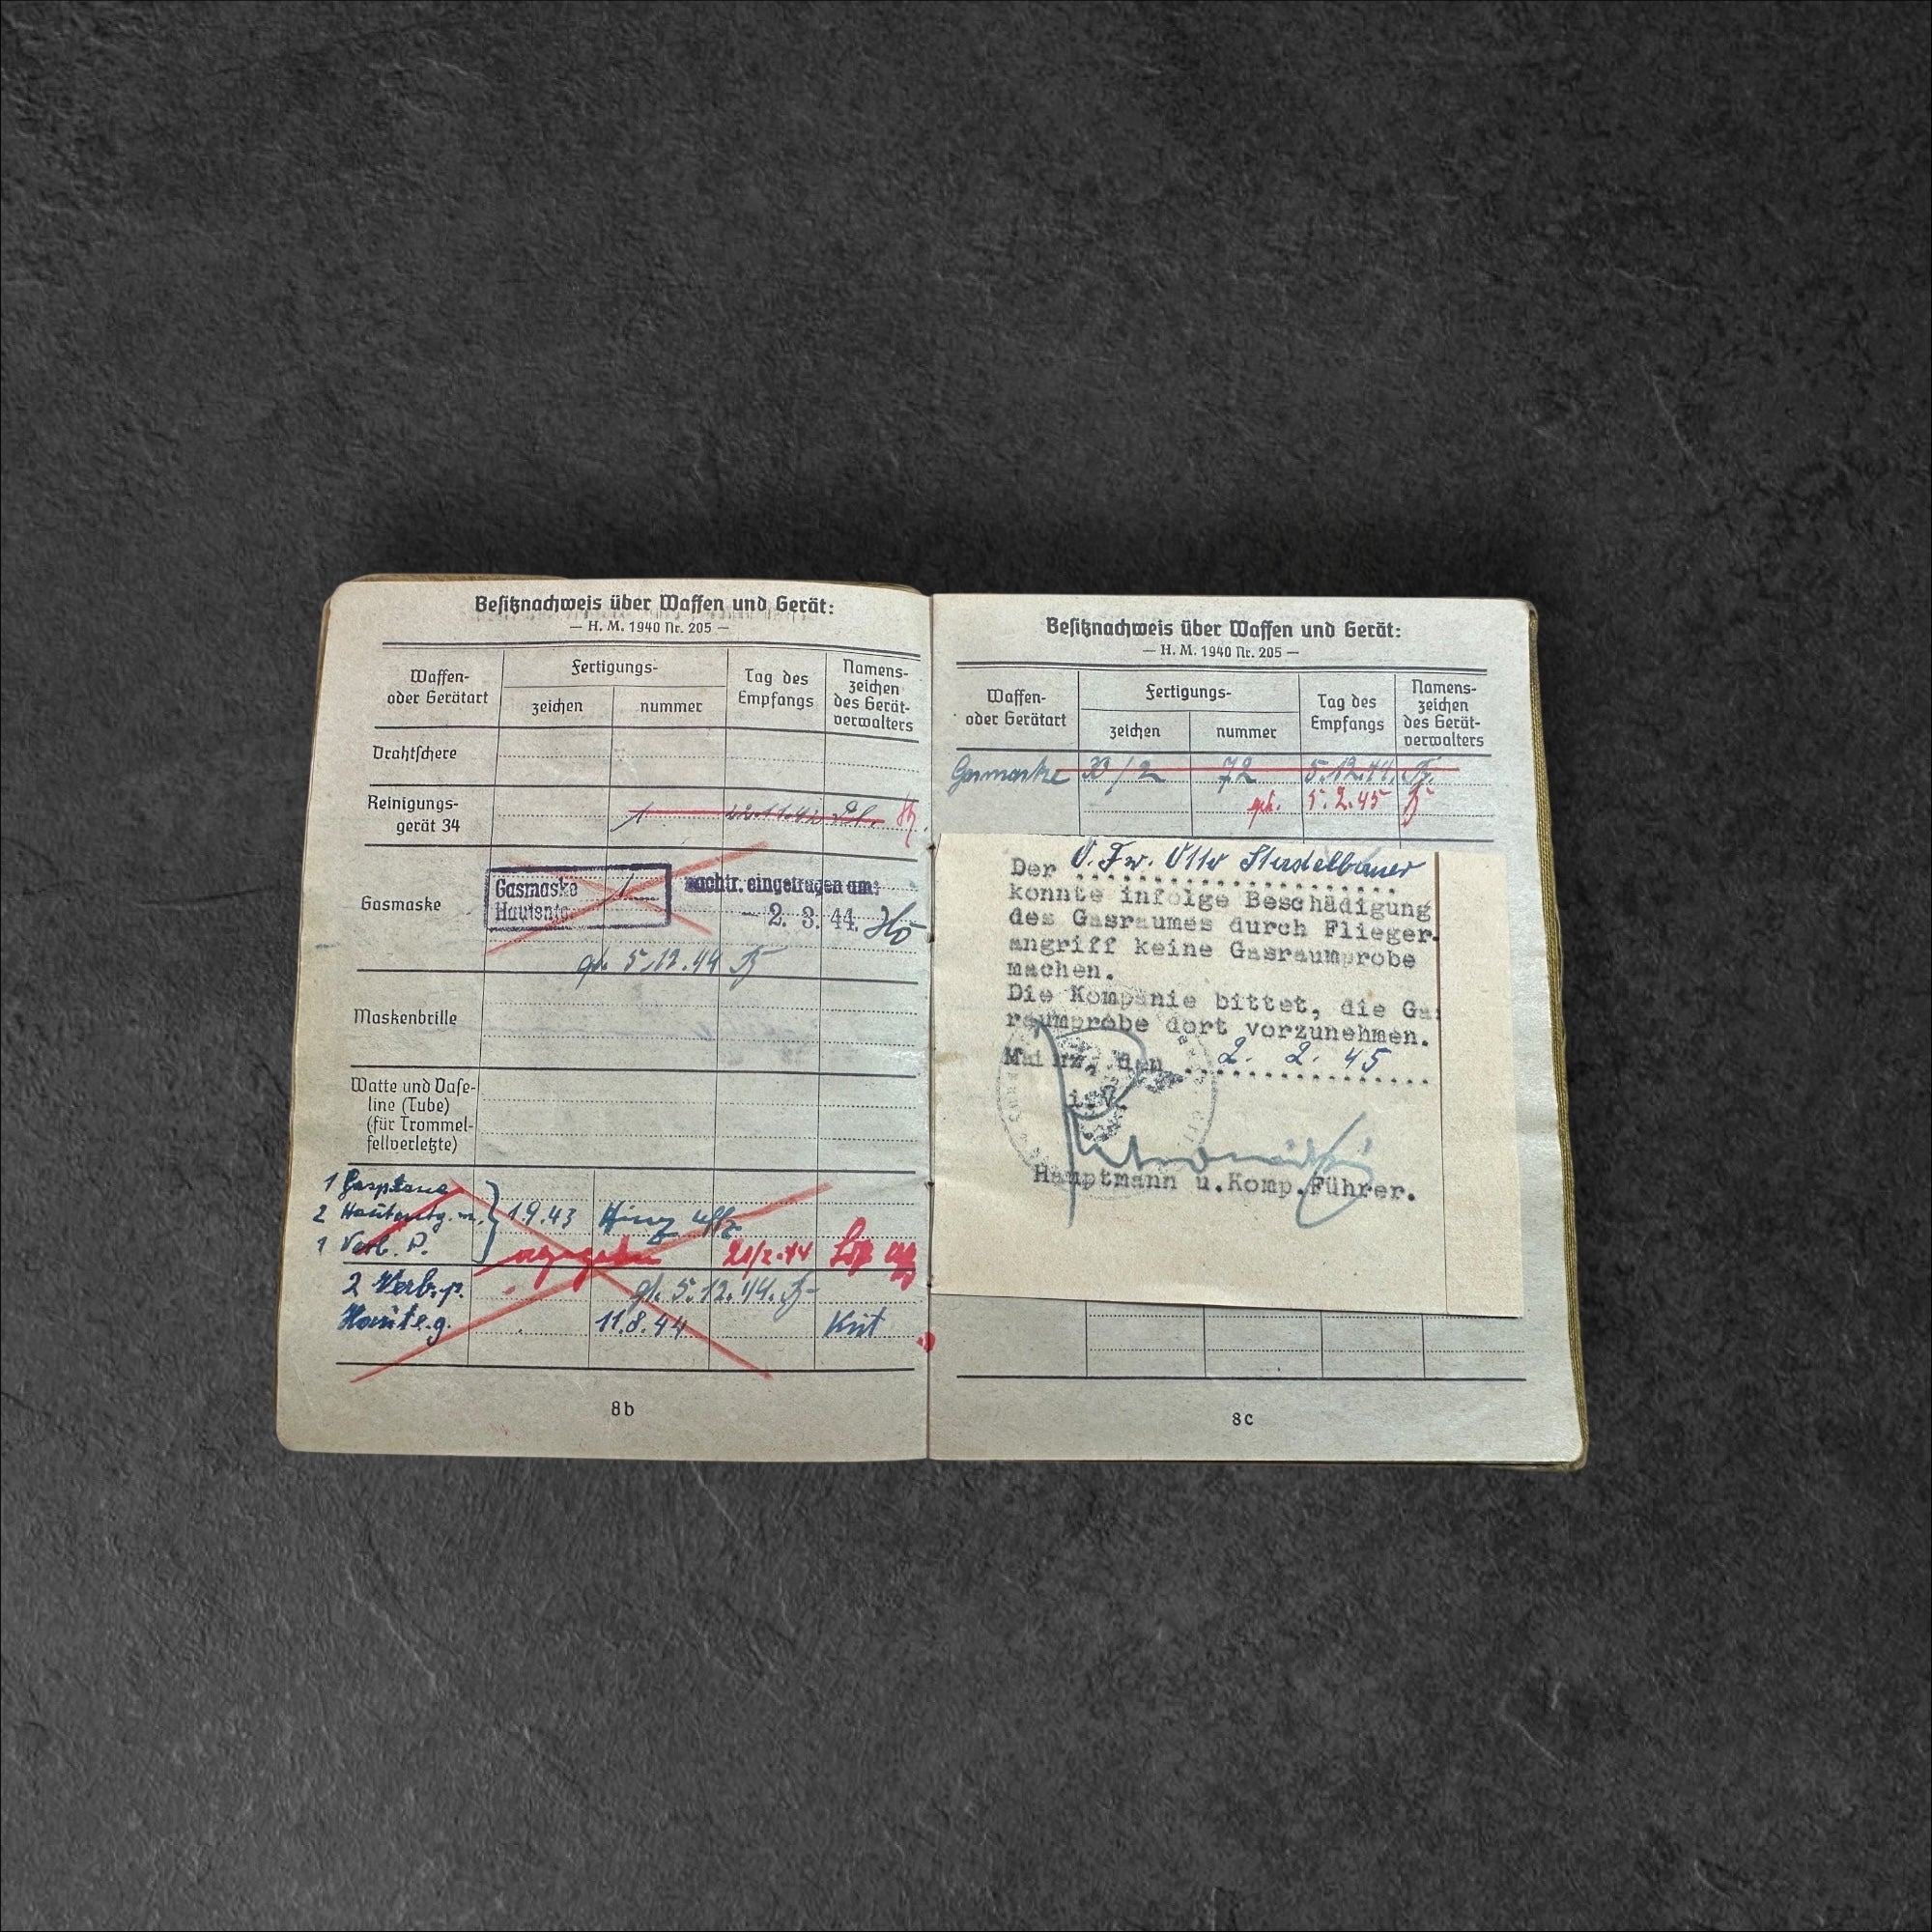 Besitznachweis über Waffen und Gerät:
— H. M. 1940 Nr. 205 —
Waffen-
oder Gerätart
Fertigungs-
zeichen
nummer
Tag des
Empfangs
Namens-
zeichen
des Gerät-
verwalters
Drahtschere
Reinigungs-
gerät 34
1 22.11.42
Gasmaske
Gasmaske 1
Hautentg.
nachtr. eingetragen am:
- 2. 3. 44.
5.12.44
Maskenbrille
Watte und Vase-
line (Tube)
(für Trommel-
fellverletzte)
1 Gasplane
2 Hautentg. m.
1 Verb. P.
1.9.43 Uffz
abgegeben
2 Verb. p.
5.12.44.
Haut e. g.
11.8.44
8b
Besitznachweis über Waffen und Gerät:
— H. M. 1940 Nr. 205 —
Waffen-
oder Gerätart
Fertigungs-
zeichen
nummer
Tag des
Empfangs
Namens-
zeichen
des Gerät-
verwalters
Gasmaske 33/2 72 5.12.44.
5.2.45
Der O. Fw. Otto Stadelbauer
konnte infolge Beschädigung
des Gasraumes durch Flieger-
angriff keine Gasraumprobe
machen.
Die Kompanie bittet, die Gas
raumprobe dort vorzunehmen.
Mainz, den 2. 2. 45
i.V.
Hauptmann u.Komp.Führer.
8c